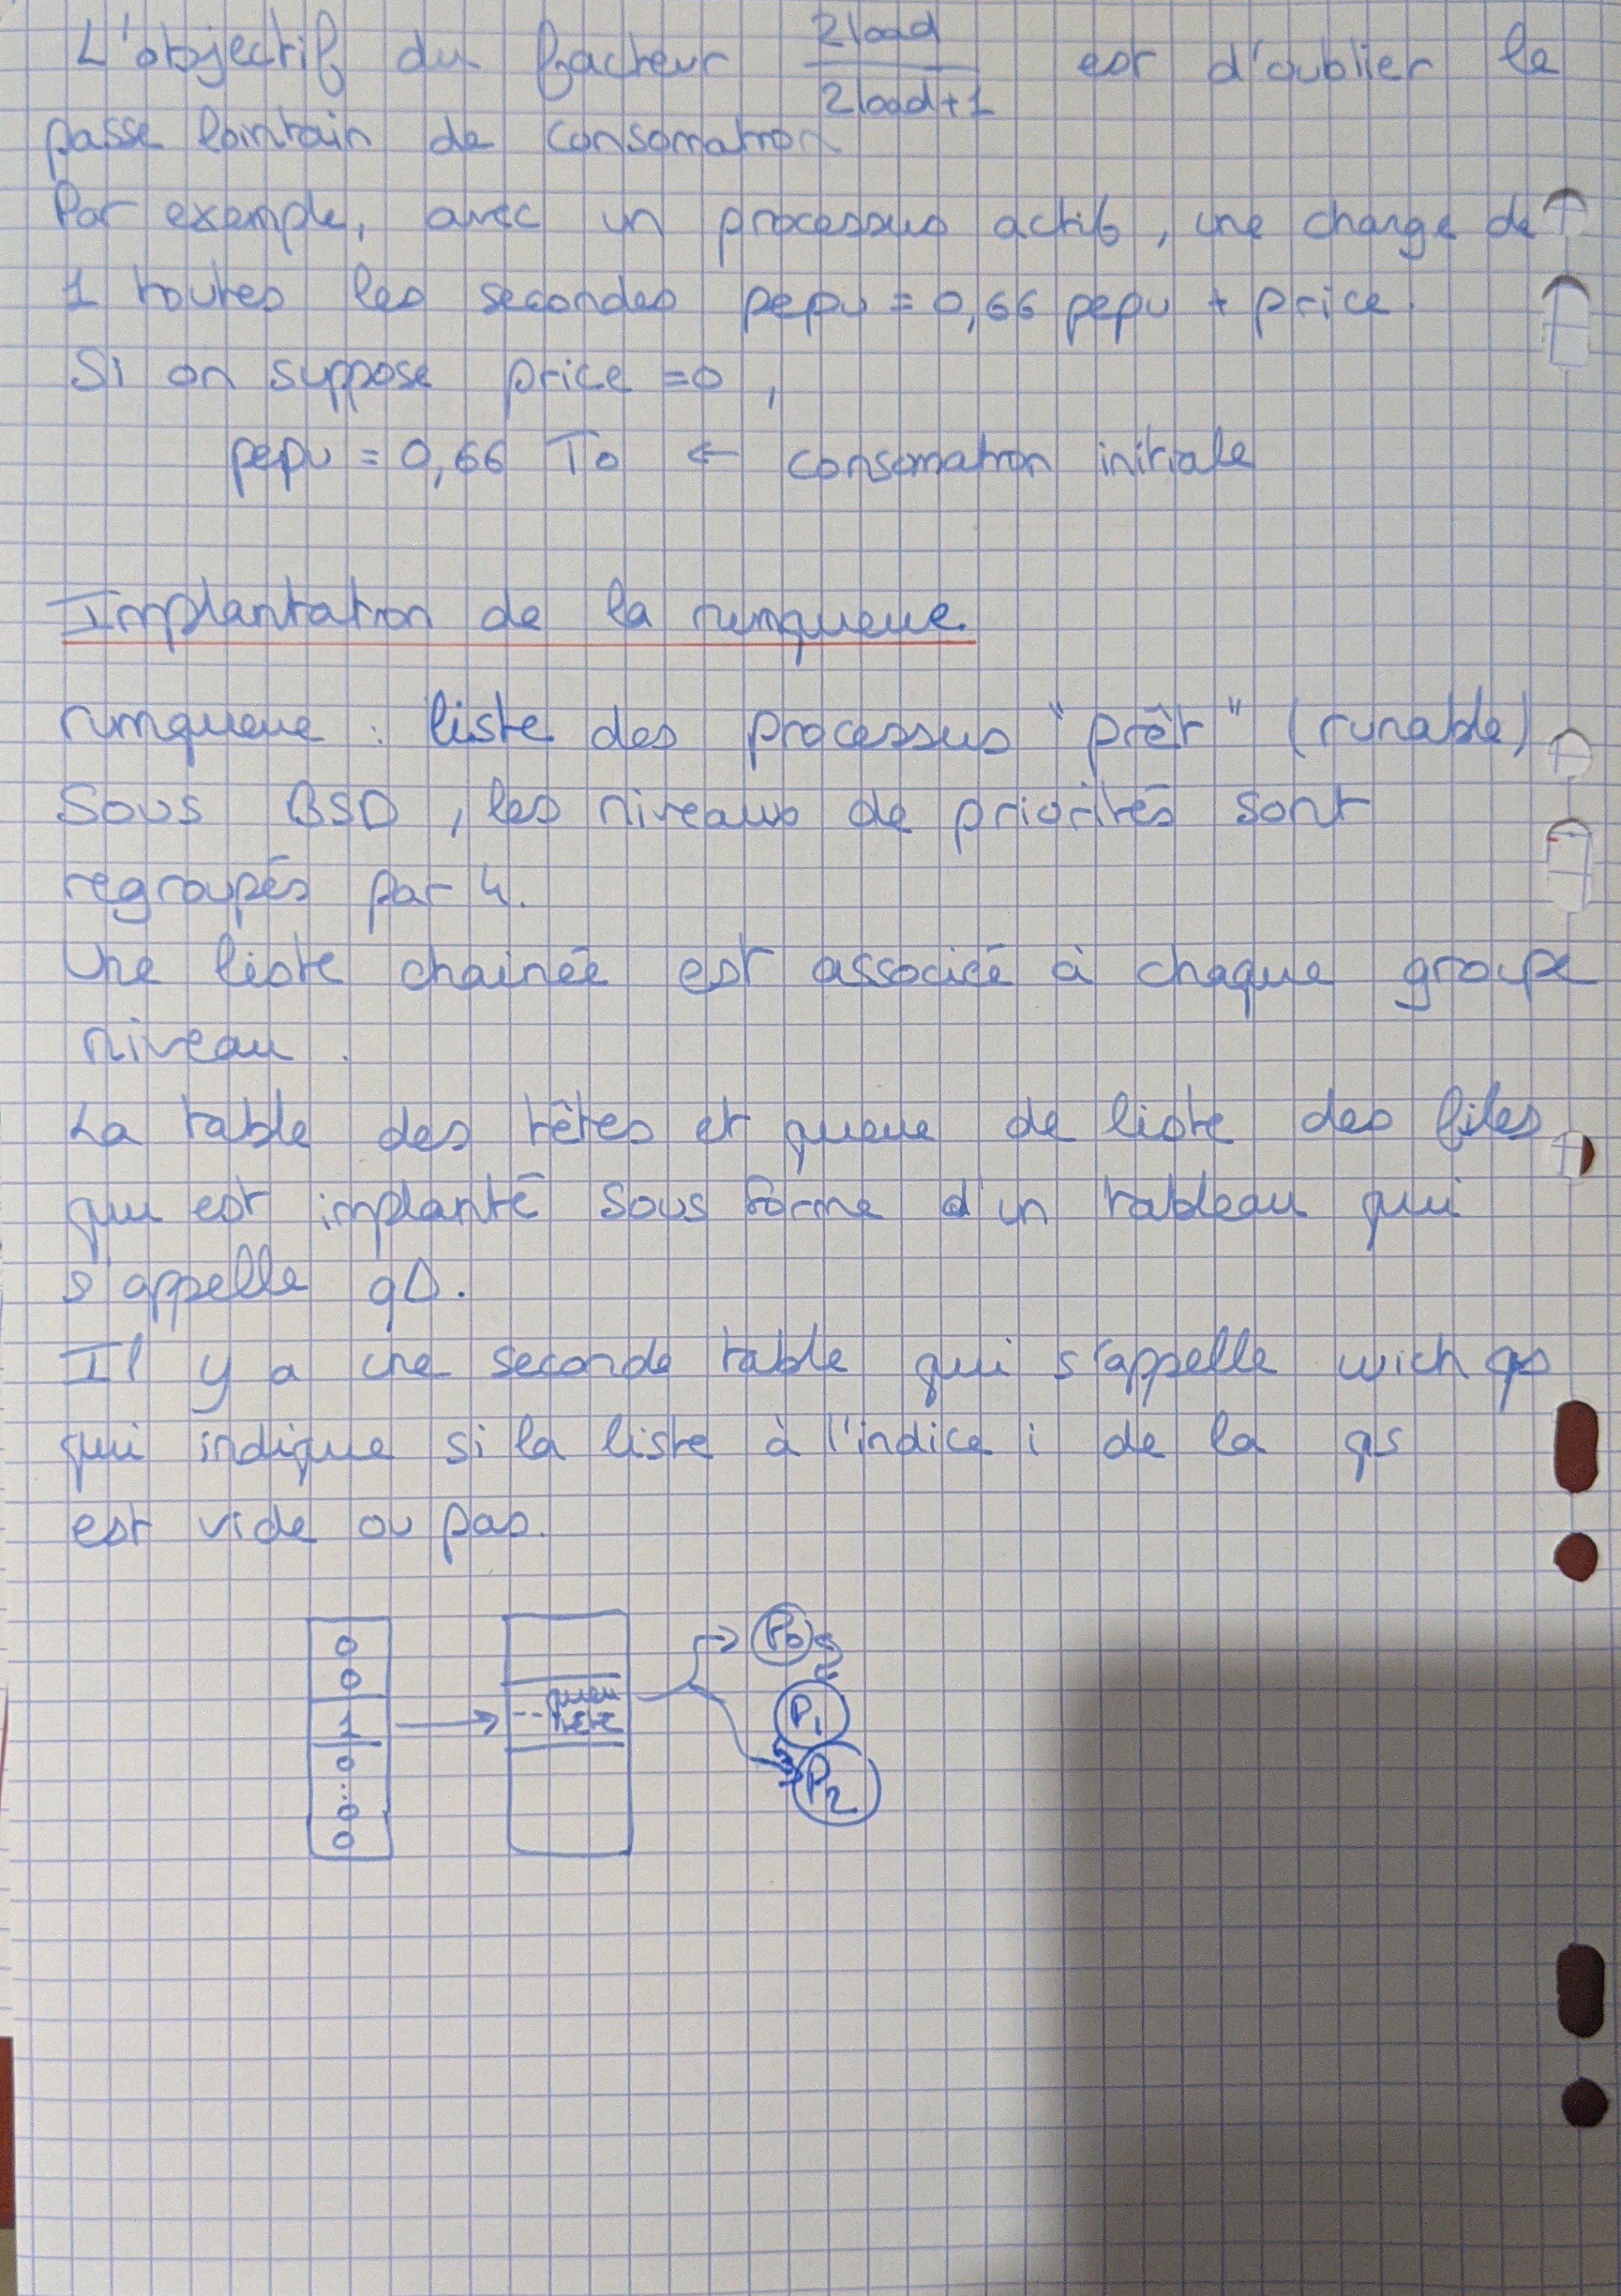 L'objectif du facteur 2load / 2load+1 est d'oublier le
passe lointain de consomation
Par exemple, avec un processus actif, une charge de
1 toutes les secondes pcpu = 0,66 pcpu + price.
Si on suppose price = 0,
pcpu = 0,66 T0 ← consomation initiale
Implantation de la runqueue.
runqueue : liste des processus "prêt" (runable)
Sous BSD, les niveaux de priorités sont
regroupés par 4.
Une liste chainée est associée à chaque groupe
niveau.
La table des têtes et queue de liste des files
qui est implanté sous forme d'un tableau qui
s'appelle qs.
Il y a une seconde table qui s'appelle wich qs
qui indique si la liste à l'indice i de la qs
est vide ou pas.
0
0
1
0
...
0
0
queu
tête
P0
P1
P2